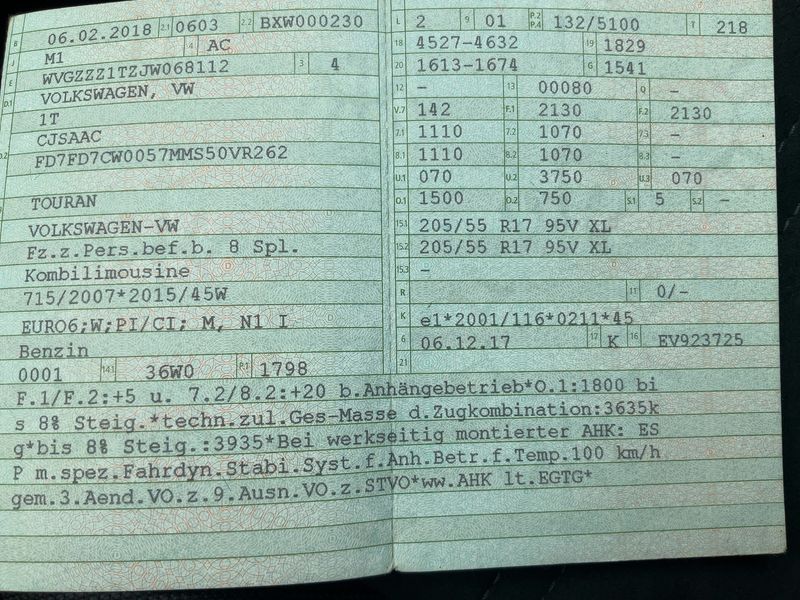 B 06.02.2018 2.1 0603 2.2 BXW000230
J M1 4 AC
E WVGZZZ1TZJW068112 3 4
D.1 VOLKSWAGEN, VW
1T
D.2 CJSAAC
FD7FD7CW0057MMS50VR262
TOURAN
VOLKSWAGEN-VW
Fz.z.Pers.bef.b. 8 Spl.
Kombilimousine
715/2007*2015/45W
EURO6;W;PI/CI; M, N1 I
Benzin
0001 14.1 36W0 P.1 1798
L 2 9 01 P.2 P.4 132/5100 T 218
18 4527-4632 19 1829
20 1613-1674 G 1541
12 - 13 00080 Q -
V.7 142 F.1 2130 F.2 2130
7.1 1110 7.2 1070 7.3 -
8.1 1110 8.2 1070 8.3 -
U.1 070 U.2 3750 U.3 070
O.1 1500 O.2 750 S.1 5 S.2 -
15.1 205/55 R17 95V XL
15.2 205/55 R17 95V XL
15.3 -
R 11 0/-
K e1*2001/116*0211*45
6 06.12.17 17 K 16 EV923725
21
F.1/F.2:+5 u. 7.2/8.2:+20 b.Anhängebetrieb*O.1:1800 bi
s 8% Steig.*techn.zul.Ges-Masse d.Zugkombination:3635k
g*bis 8% Steig.:3935*Bei werkseitig montierter AHK: ES
P m.spez.Fahrdyn.Stabi.Syst.f.Anh.Betr.f.Temp.100 km/h
gem.3.Aend.VO.z.9.Ausn.VO.z.STVO*ww.AHK lt.EGTG*